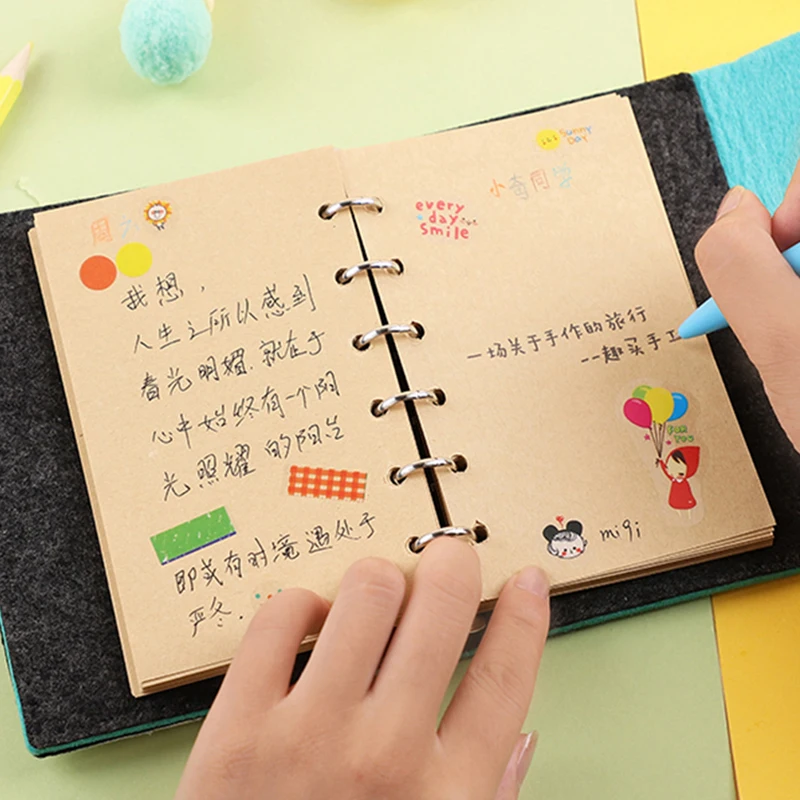 周六
我想，
人生之所以感到
春光明媚.就在于
心中始终有一个阳
光照耀的阳台
即或有时境遇处于
严冬.
Sunny
Day
小奇同学
every
day
smile
一场关于手作的旅行
--趣买手工
FOR
YOU
migi